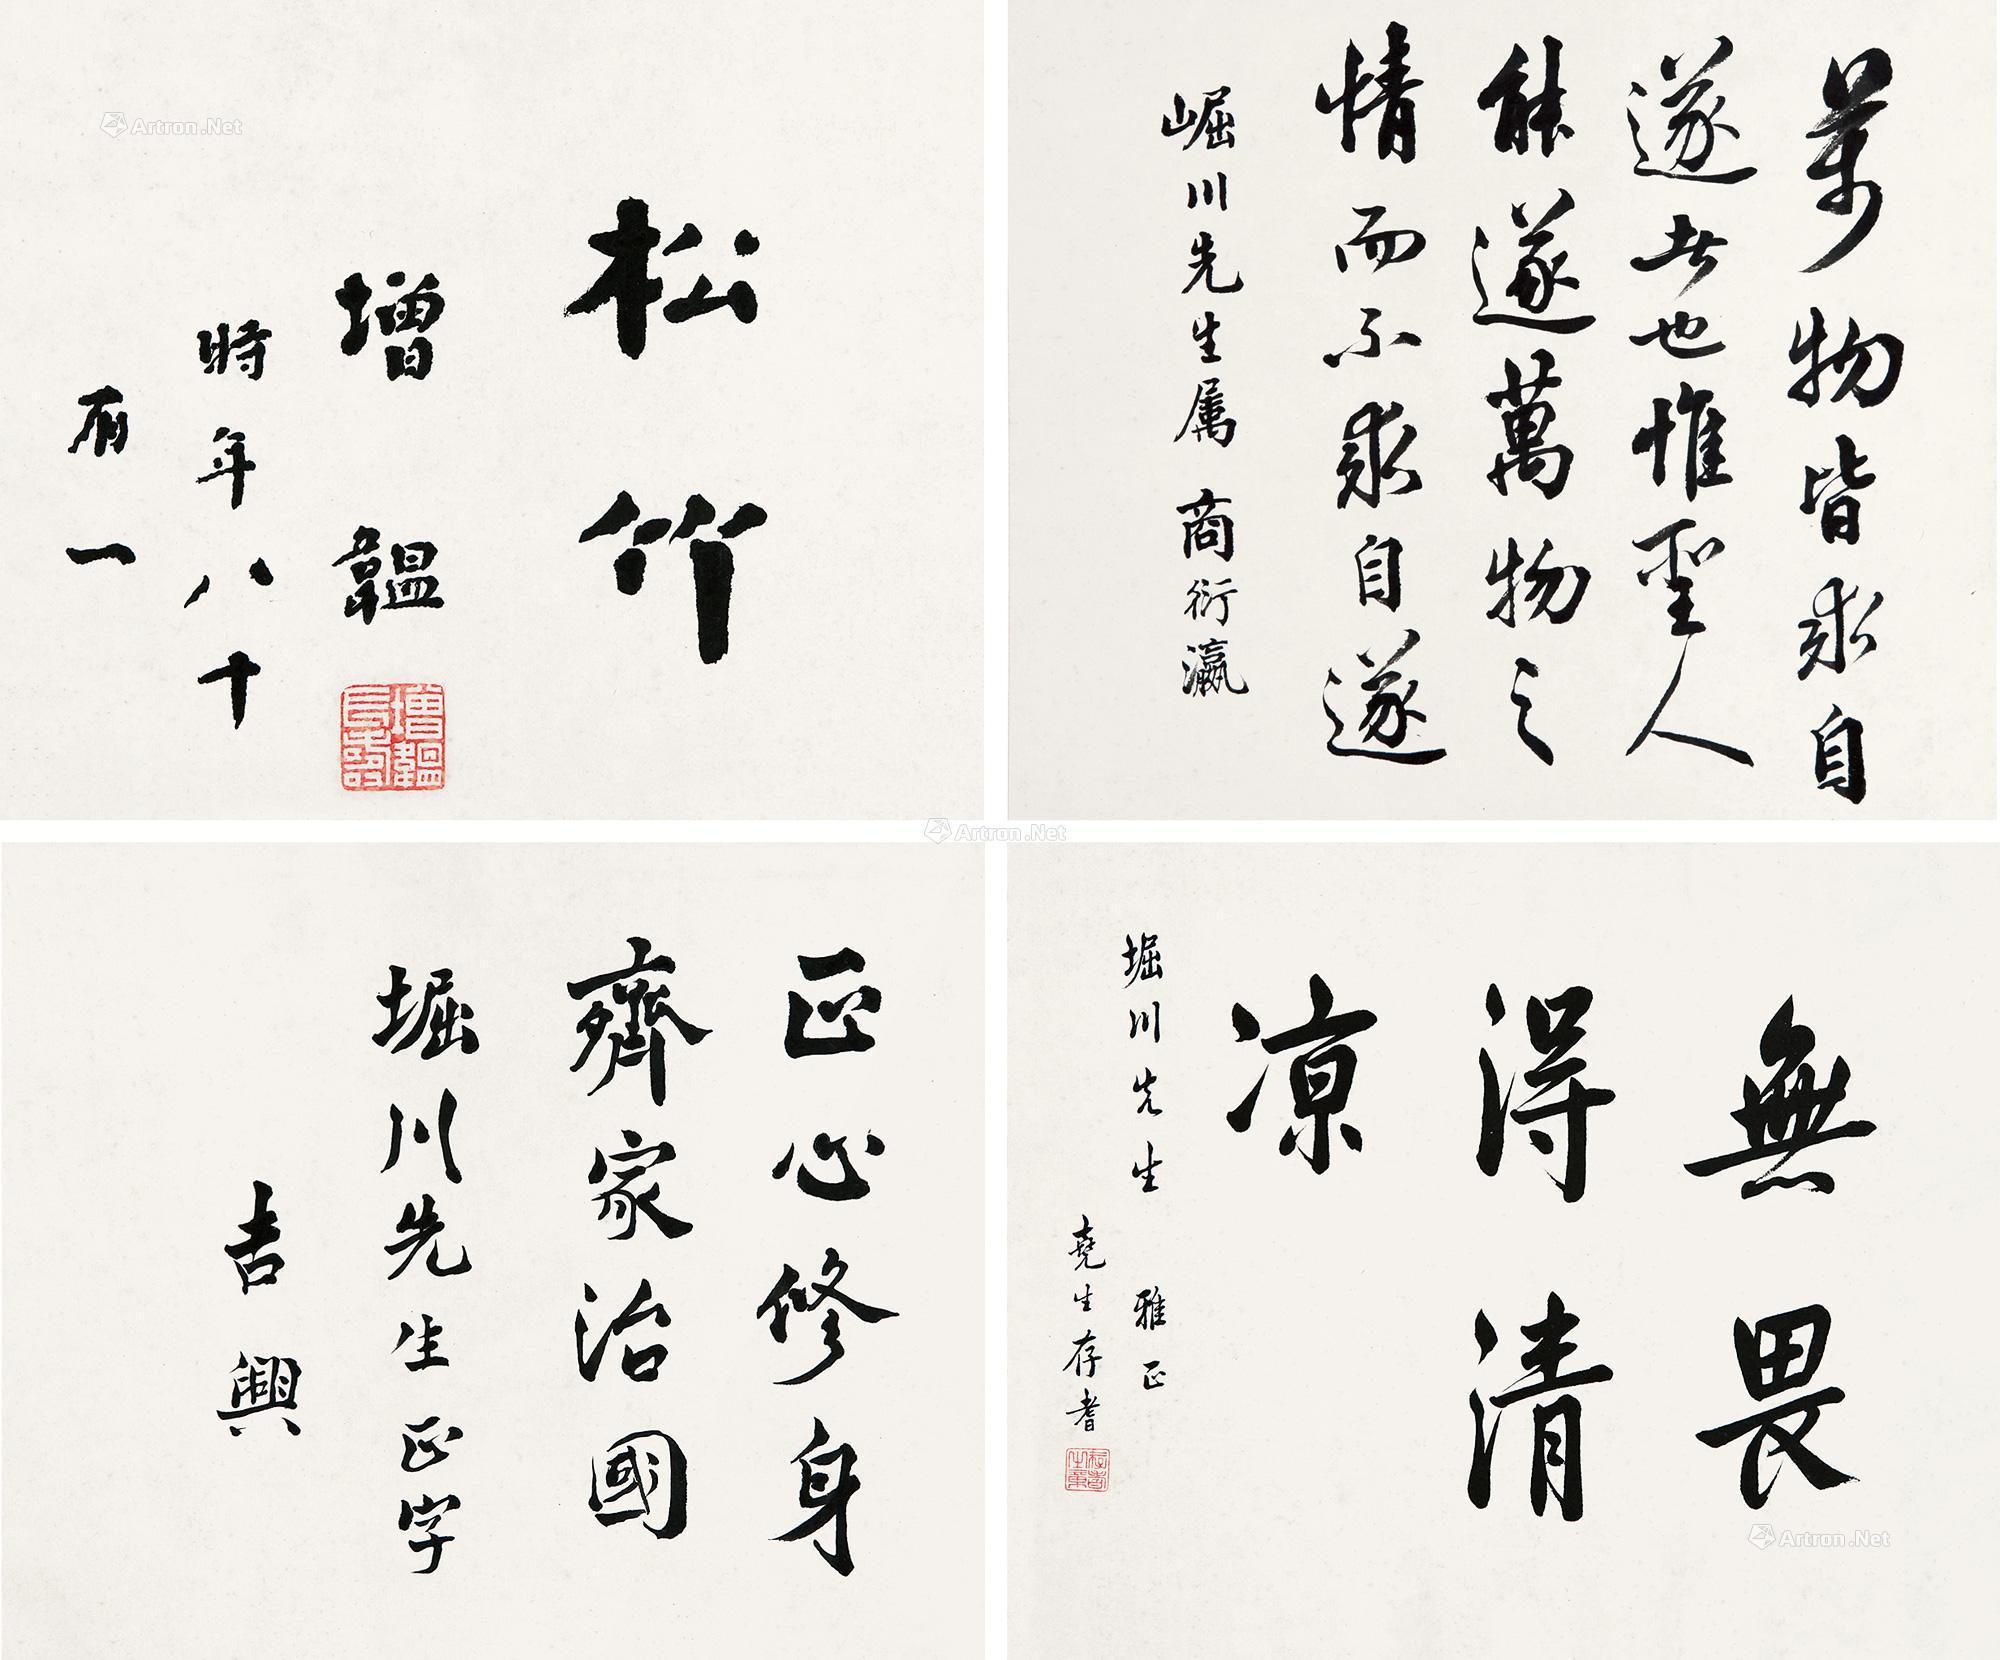 松竹
增韞
時年八十
有一
增韞
Artron.Net
萬物皆求自
遂者也惟聖人
能遂萬物之
情而不求自遂
崛川先生属 商衍瀛
Artron.Net
正心修身
齊家治國
堀川先生正字
吉興
無畏
得清
凉
堀川先生 雅正
堯生存耆
Artron.Net